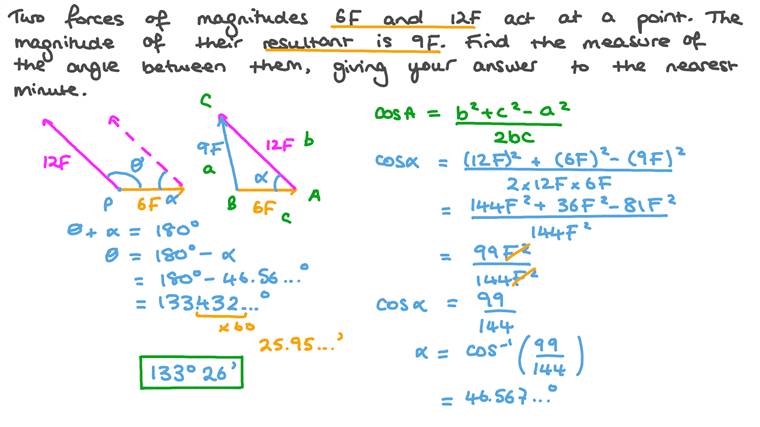 Two forces of magnitudes 6F and 12F act at a point. The
magnitude of their resultant is 9F. Find the measure of
the angle between them, giving your answer to the nearest
minute.
12F
θ
α
P
6F
C
9F
12F
b
a
α
B
6F
A
c
θ + α = 180°
θ = 180° - α
= 180° - 46.56...°
= 133.432...°
×60
25.95...'
133° 26'
cosA = b² + c² - a² / 2bc
cosα = (12F)² + (6F)² - (9F)² / 2 × 12F × 6F
= 144F² + 36F² - 81F² / 144F²
= 99F² / 144F²
cosα = 99 / 144
α = cos⁻¹ (99 / 144)
= 46.567...°